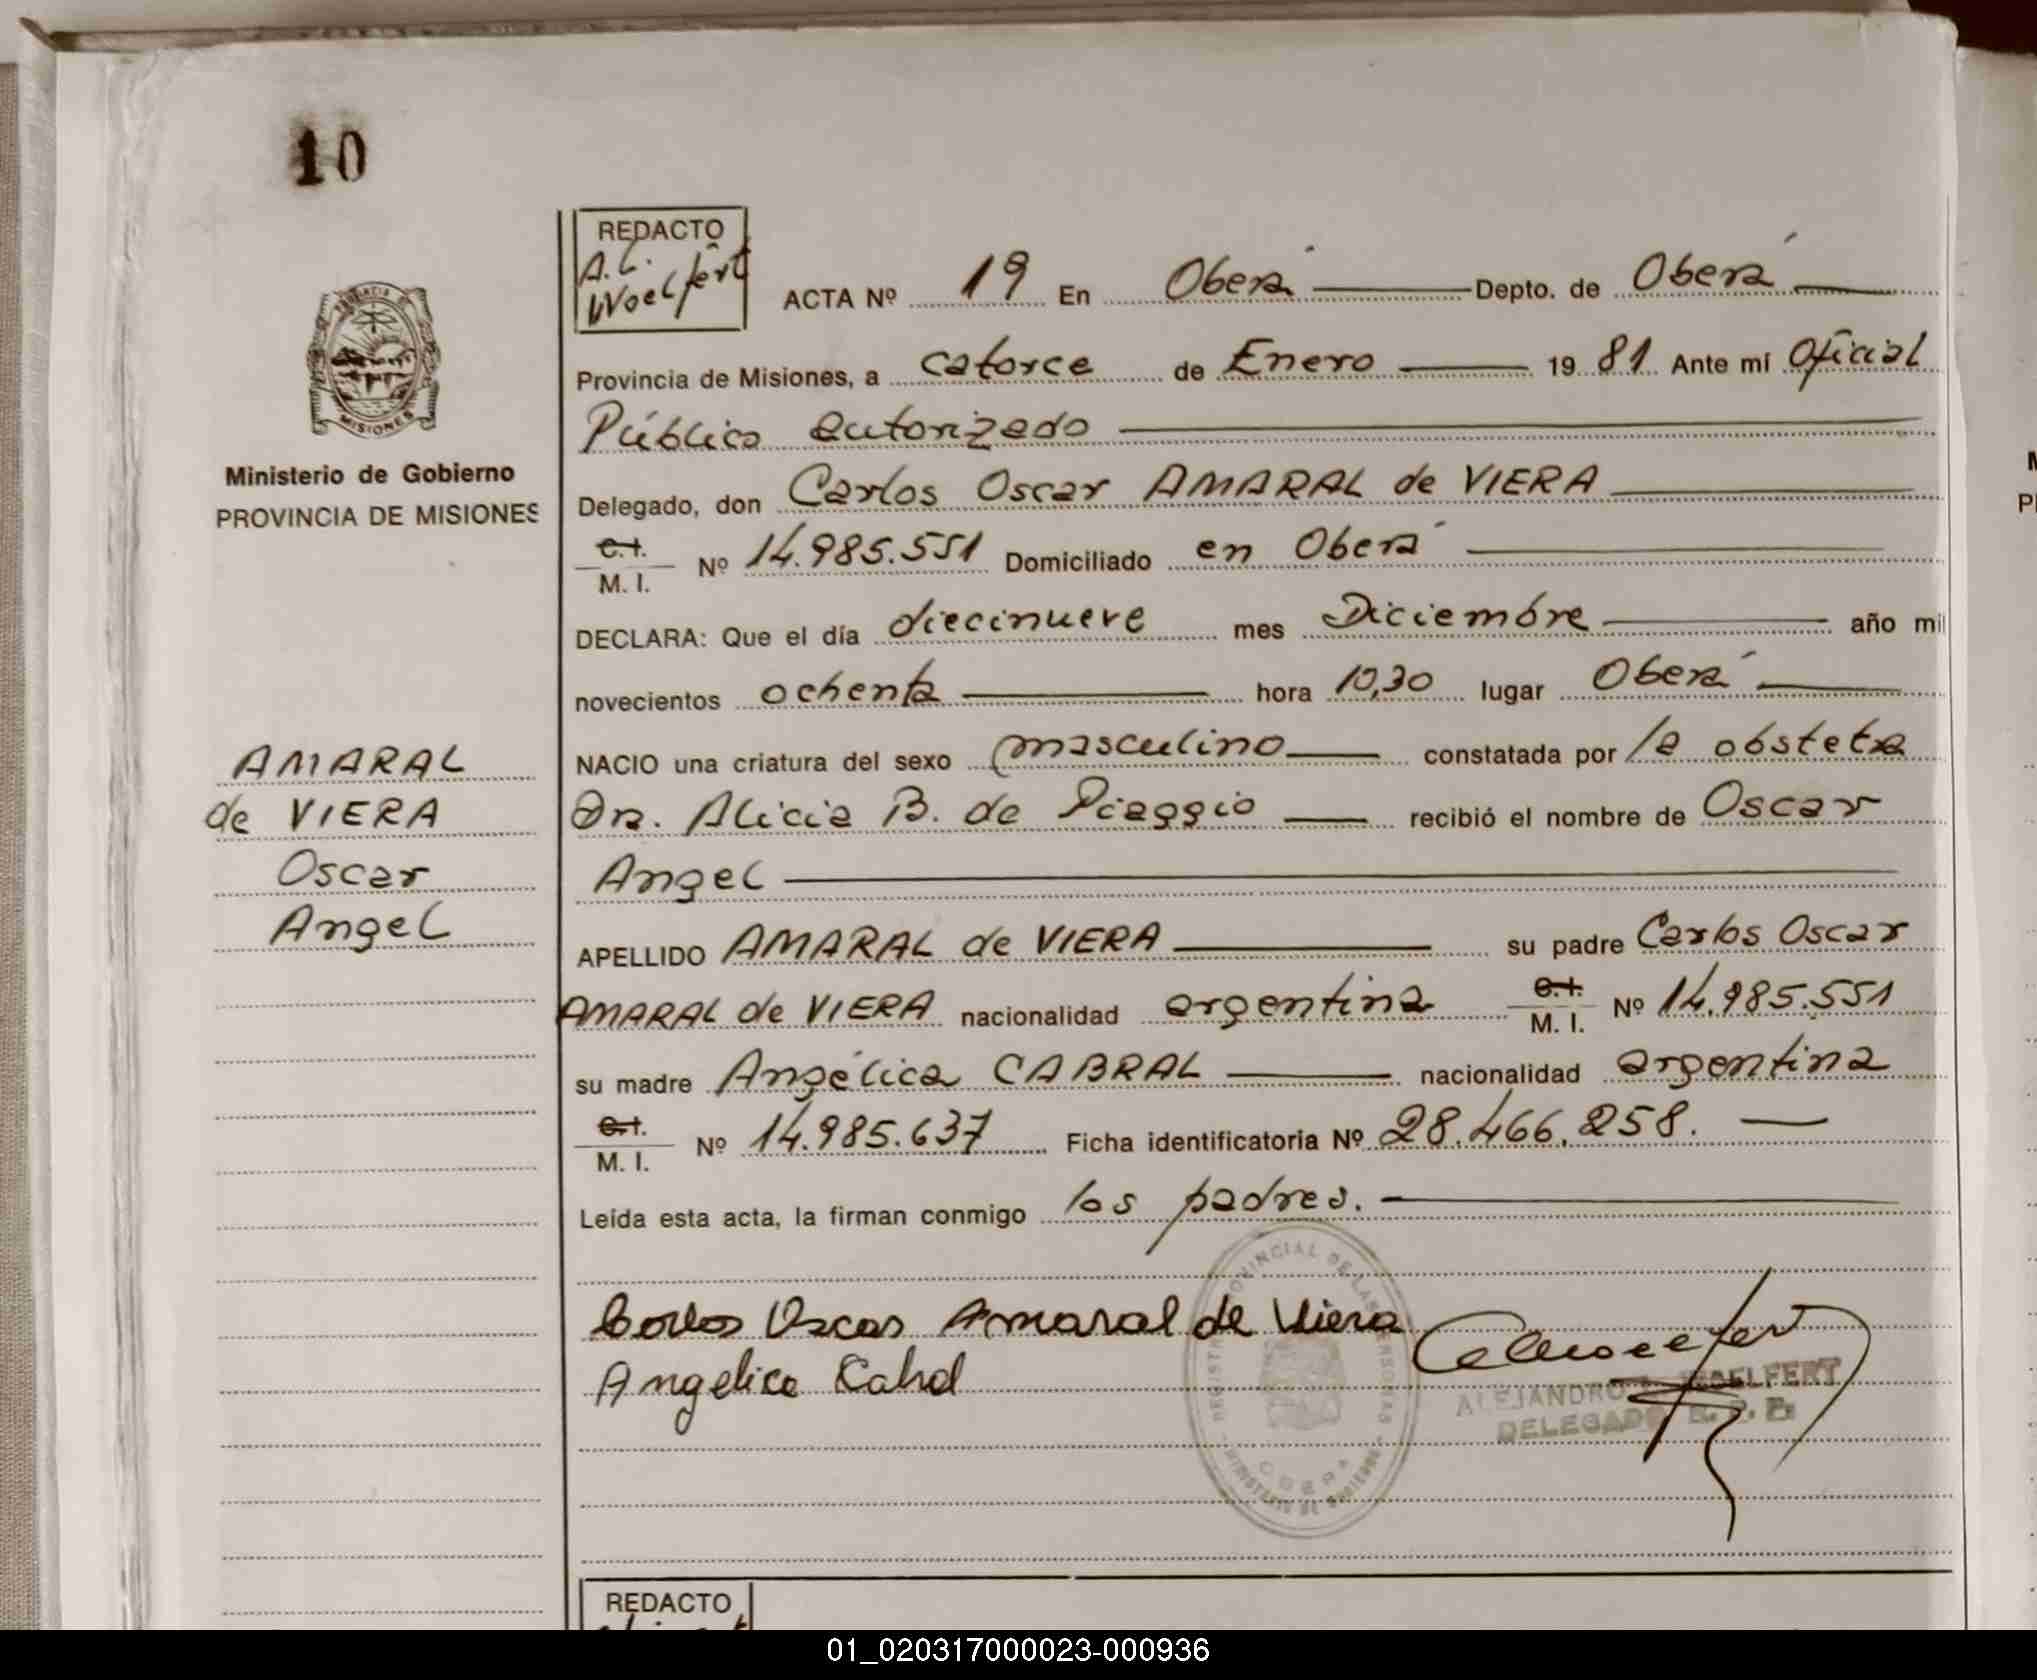 10
REDACTO
A. L. Woelfert
ACTA Nº 19 En Oberá Depto. de Oberá
Provincia de Misiones, a catorce de Enero 19 81 Ante mí Oficial
Público autorizado
Ministerio de Gobierno
PROVINCIA DE MISIONES
MISIONES
Delegado, don Carlos Oscar AMARAL de VIERA
C.I. M. I. Nº 14.985.551 Domiciliado en Oberá
DECLARA: Que el día diecinueve mes Diciembre año mil
novecientos ochenta hora 10,30 lugar Oberá
NACIO una criatura del sexo masculino constatada por la obstetra
Dra. Alicia B. de Piaggio recibió el nombre de Oscar
Angel
AMARAL
de VIERA
Oscar
Angel
APELLIDO AMARAL de VIERA su padre Carlos Oscar
AMARAL de VIERA nacionalidad argentina C.I. M. I. Nº 14.985.551
su madre Angélica CABRAL nacionalidad argentina
C.I. M. I. Nº 14.985.637 Ficha identificatoria Nº 28.466.258.
Leída esta acta, la firman conmigo los padres.
Carlos Oscar Amaral de Viera
Angelica
ALEJANDRO WOELFERT
DELEGADO R. P. P.
REGISTRO PROVINCIAL DE LAS PERSONAS
OBERA
MINISTERIO DE GOBIERNO
REDACTO
01_020317000023-000936